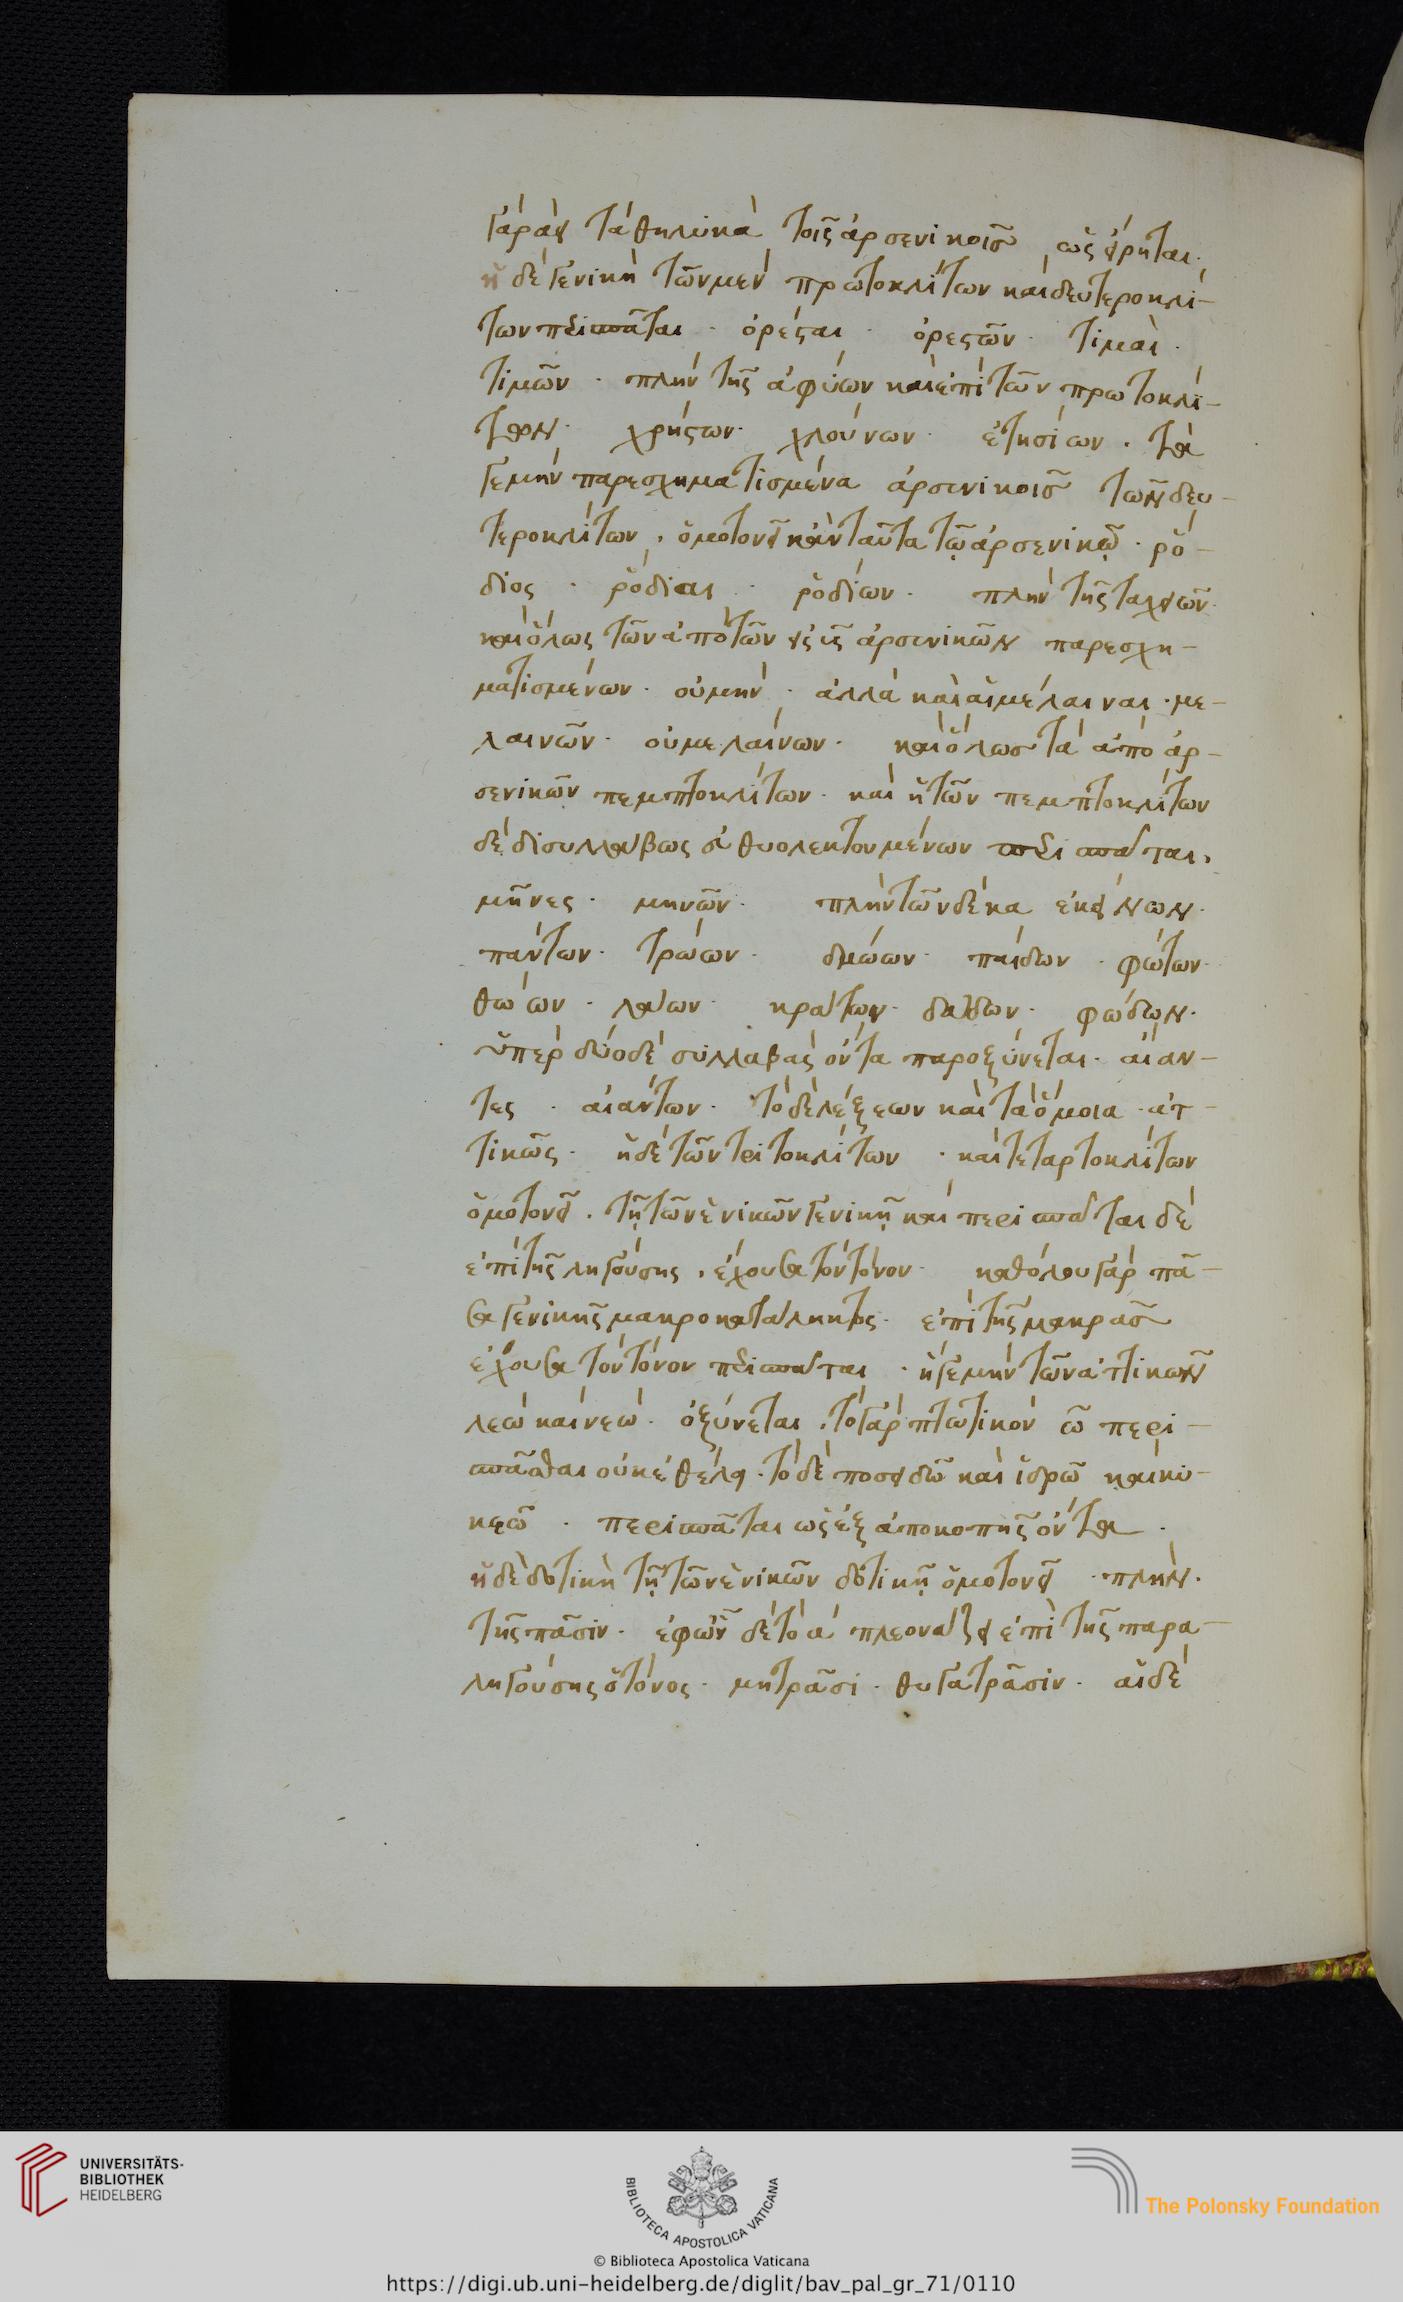 γὰρ ἀεὶ τὰ θηλυκὰ τοῖς ἀρσενικοῖς, ὡς εἴρηται.
ἡ δὲ γενικὴ τῶν μὲν πρωτοκλίτων καὶ δευτεροκλί-
των περισπᾶται· ὀρέσται· ὀρεστῶν· τιμαὶ·
τιμῶν· πλὴν τῆς ἀφύων καὶ ἐπὶ τῶν πρωτοκλί-
των· χρήστων· χλούνων· ἐτησίων. τὰ
γε μὴν παρεσχηματισμένα ἀρσενικοῖς τῶν δευ-
τεροκλίτων, ὁμοτονεῖ κἀνταῦθα τῷ ἀρσενικῷ· ῥό-
διος· ῥόδιαι· ῥοδίων· πλὴν τῆς ταχειῶν·
καὶ ὅλως τῶν ἀπὸ τῶν εἰς ὺς ἀρσενικῶν παρεσχη-
ματισμένων· οὐ μὴν· ἀλλὰ καὶ αἱ μέλαιναι· με-
λαινῶν· οὐ μελαίνων· καὶ ὅλως τὰ ἀπὸ ἀρ-
σενικῶν πεμπτοκλίτων· καὶ ἡ τῶν πεμπτοκλίτων
δὲ δισυλλάβως εὐθυολεκτουμένων περισπᾶται,
μῆνες· μηνῶν· πλὴν τῶν δέκα ἐκείνων·
πάντων· τρώων· δμώων· παίδων· φώτων·
θώων· λάων· κράτων· δαΐδων· φώδων·
ὑπὲρ δύο δὲ συλλαβὰς ὄντα παροξύνεται· αἴαν-
τες· αἰάντων· τὸ δὲ λέξεων καὶ τὰ ὅμοια ἀτ-
τικῶς· ἡ δὲ τῶν τριτοκλίτων· καὶ τεταρτοκλίτων
ὁμοτονεῖ. τῇ τῶν ἑνικῶν γενικῇ καὶ περισπᾶται δὲ
ἐπὶ τῆς ληγούσης, ἔχουσα τὸν τόνον· καθόλου γὰρ πᾶ-
σα γενικὴ μακροκατάληκτος· ἐπὶ τῆς μακρᾶς
ἔχουσα τὸν τόνον περισπᾶται· ἡ γε μὴν τῶν ἀττικῶν
λεὼ καὶ νεὼ· ὀξύνεται. τὸ γὰρ πτωτικὸν ω περι-
σπᾶσθαι οὐκ ἐθέλει. τὸ δὲ ποσειδῶ καὶ ἱδρῶ καὶ κυ-
κεῶ· περισπᾶται ὡς ἐξ ἀποκοπῆς ὄντα·
ἡ δὲ δοτικὴ τῇ τῶν ἑνικῶν δοτικῇ ὁμοτονεῖ· πλὴν·
τῆς πᾶσιν· ἐφ' ὧν δὲ τὸ α πλεονάζει ἐπὶ τῆς παρα-
ληγούσης ὁ τόνος· μητρᾶσι· θυγατρᾶσιν· αἱ δὲ
UNIVERSITÄTS-
BIBLIOTHEK
HEIDELBERG
BIBLIOTECA APOSTOLICA VATICANA
The Polonsky Foundation
© Biblioteca Apostolica Vaticana
https://digi.ub.uni-heidelberg.de/diglit/bav_pal_gr_71/0110